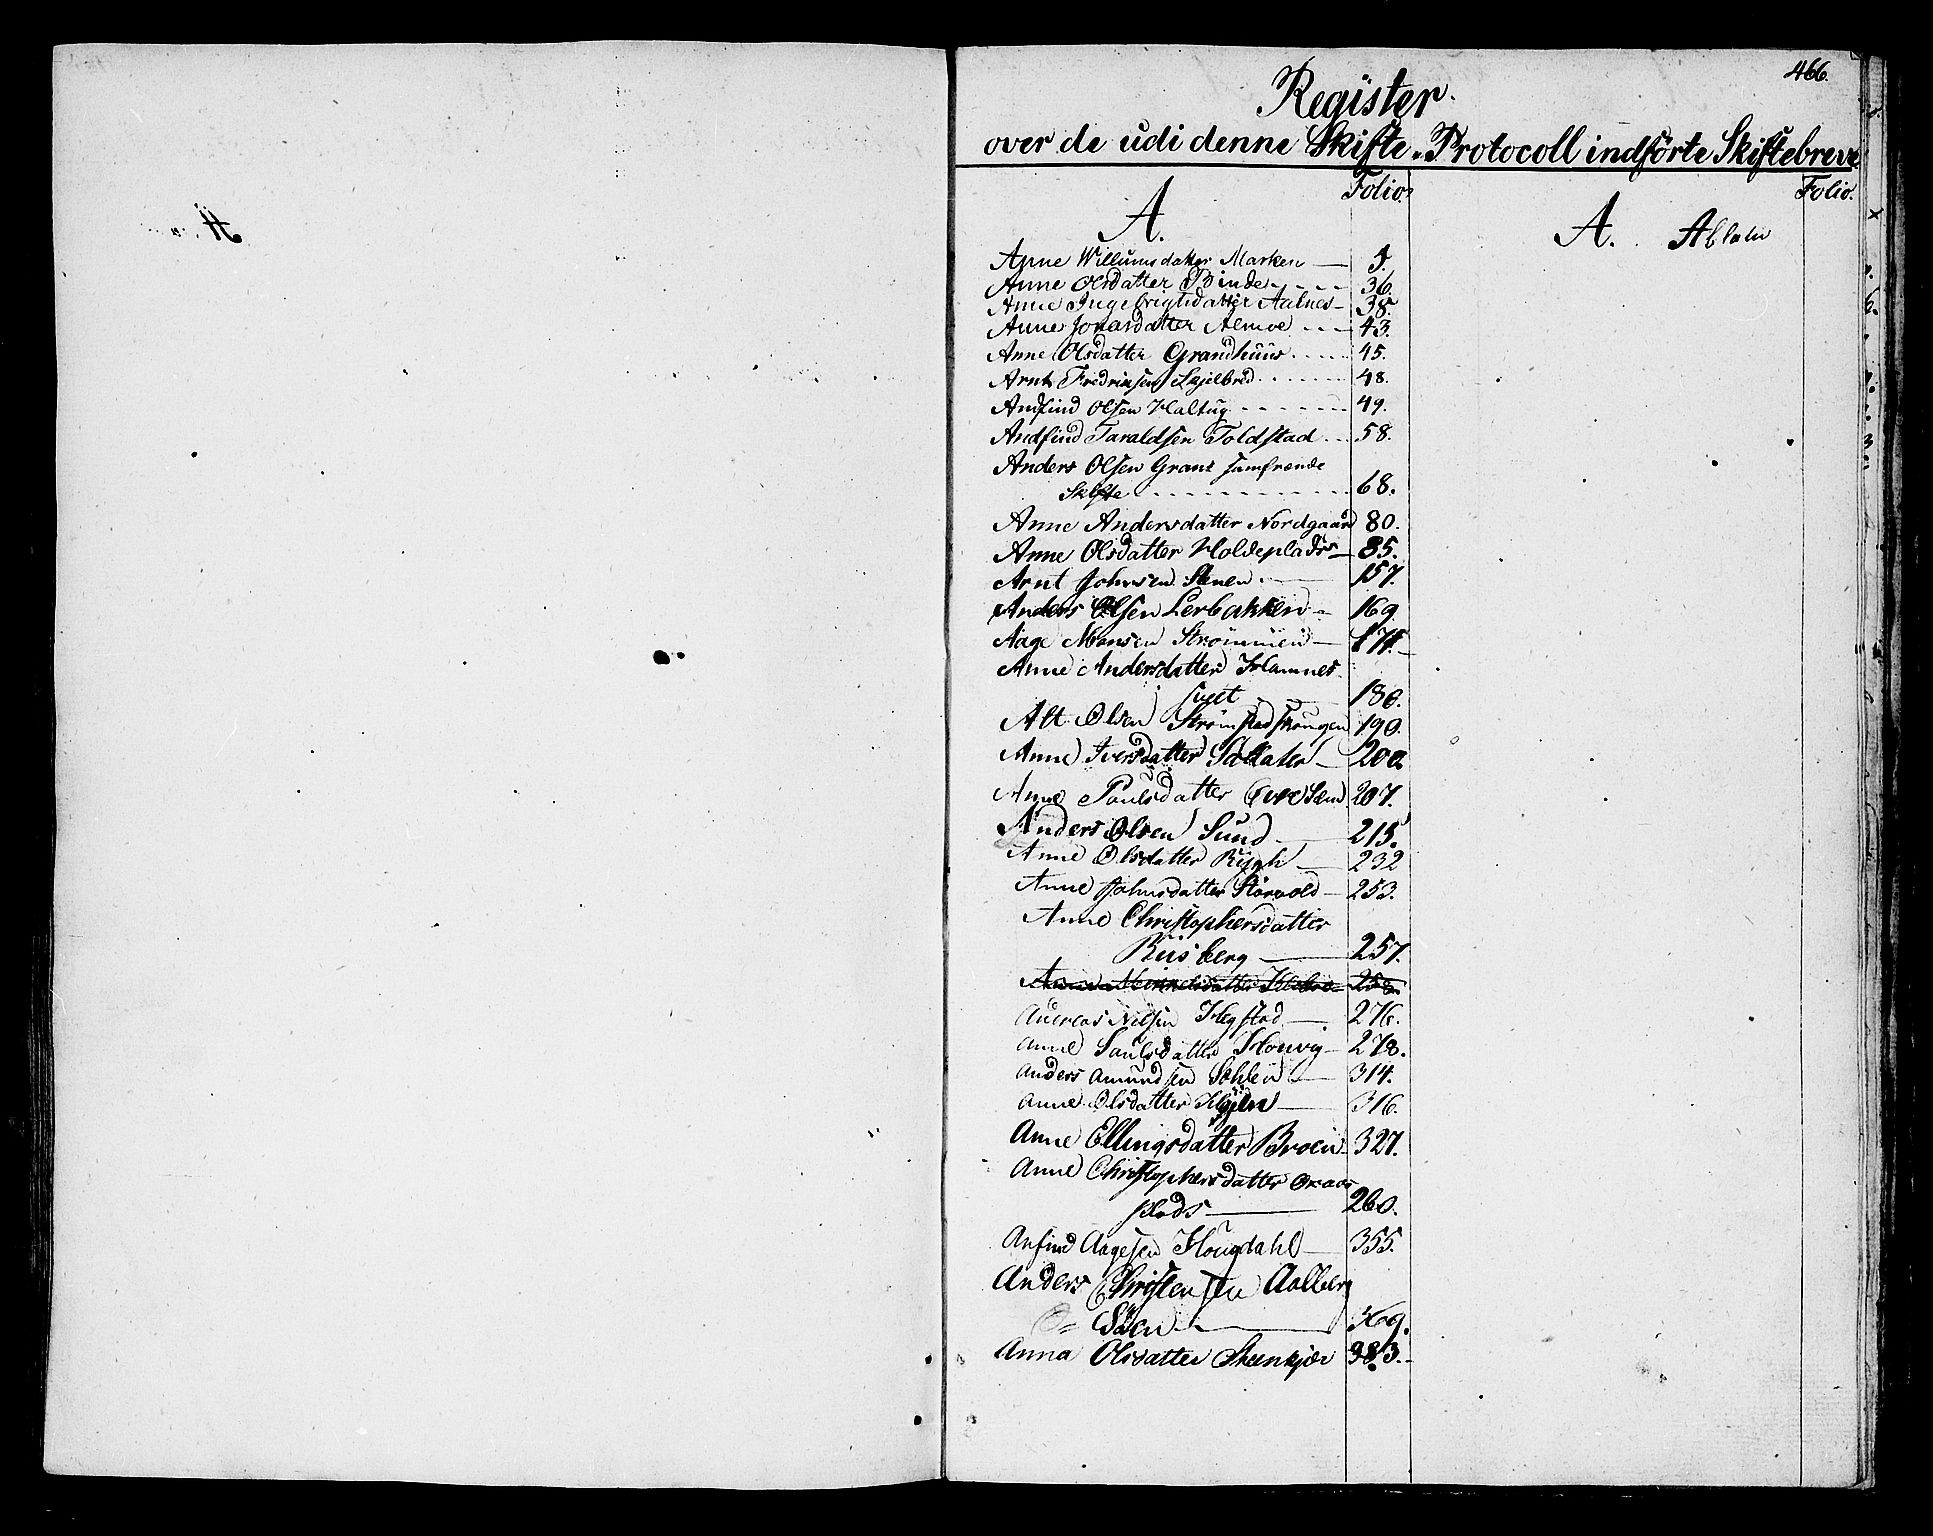 466.
Register
over de udi denne Skifte-Protocoll indførte Skiftebreve
Folio.
A.
Anne Willumsdatter Marken — 5.
Anne Olsdatter Binde - - - - 36.
Anne Ingebrigtsdatter Aalnes - 38.
Anne Jonasdatter Almoe - - - 43.
Anne Olsdatter Grandhuus . . . . . 45.
Arnt Fredriksen Lejelbred . . . . . . 48.
Andfind Olsen Haltug - - - - - - 49.
Andfind Taraldsen Toldstad . . . 58.
Anders Olsen Grans samfrænde
Skifte - - - - - - - - - - - 68.
Anne Andersdatter Nordgaard 80.
Anne Olsdatter Holdeplads — 85.
Arnt Johnsen Stenen — 157.
Anders Olsen Lerbakken - 169.
Aage Monsen Strömmen — 174.
Anne Andersdatter Hamnes
180.
Alt Olsen Strømstadskougen 190.
Anne Iversdatter — 200
Anne Paulsdatter 207.
Anders Olsen Sund — 215.
Anne Olsdatter Rygh — 232
Anne Johnsdatter Storvold — 253.
Anne Christophersdatter
Riisberg — 257.
Anne 258
Andreas Nilsen Hegstad — 276.
Anne Paulsdatter Houvig — 278.
Anders Amundsen Dahlen — 314.
Anne Olsdatter — 316.
Anne Ellingsdatter Broen - 327.
Anne Christophersdatter
plads — 260.
Anfind Aagesen Hougdahl — 355.
Anders Christensen Aalberg
Söen — 369.
Anna Olsdatter Steenkjær 383.
Folio.
A.